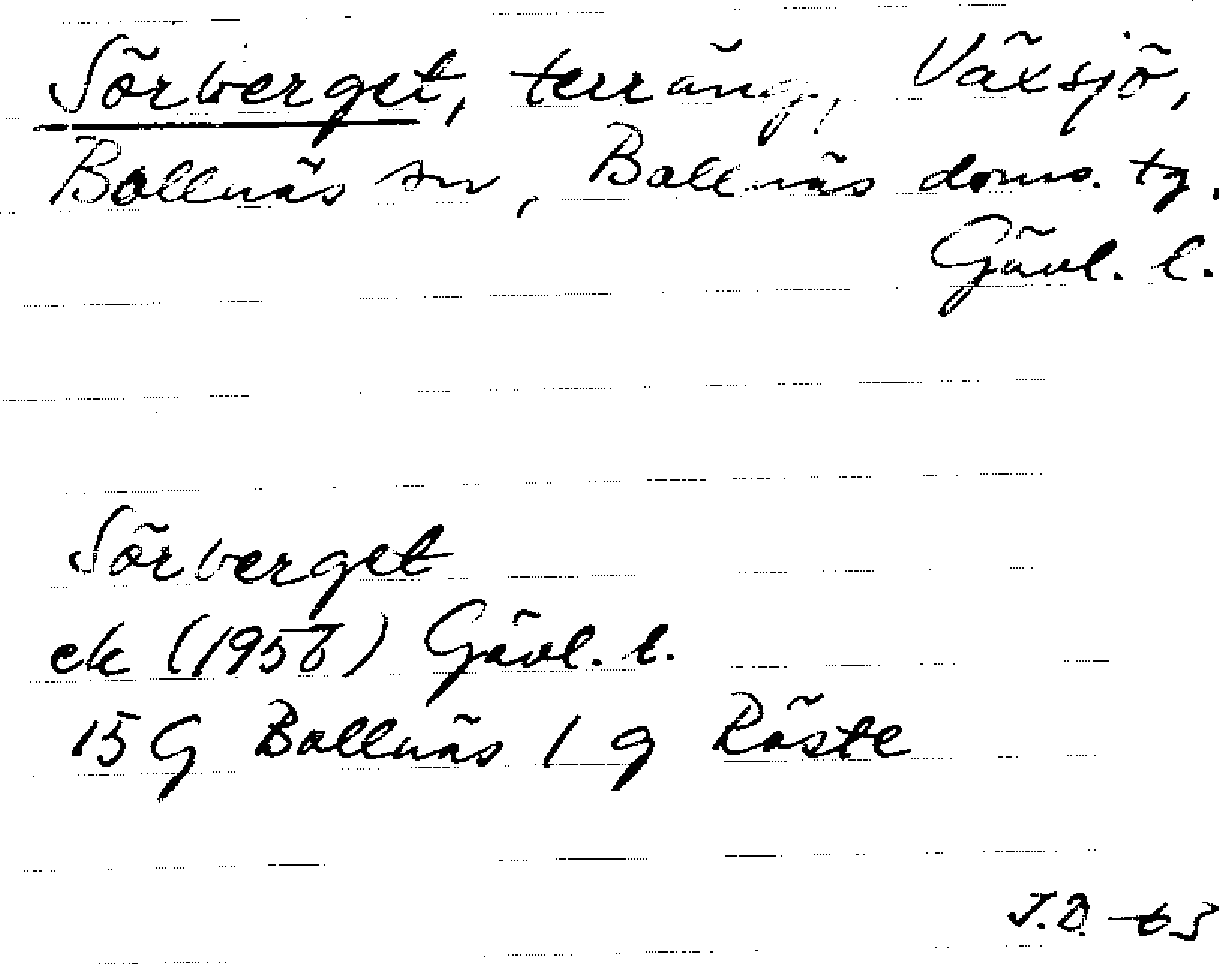 Sörberget, terräng, Växsjö,
Bollnäs sn, Bollnäs doms. tg.
Gävl. l.
Sörberget
ek (1956) Gävl. l.
15 G Bollnäs 1 g Röste
J.D. -63